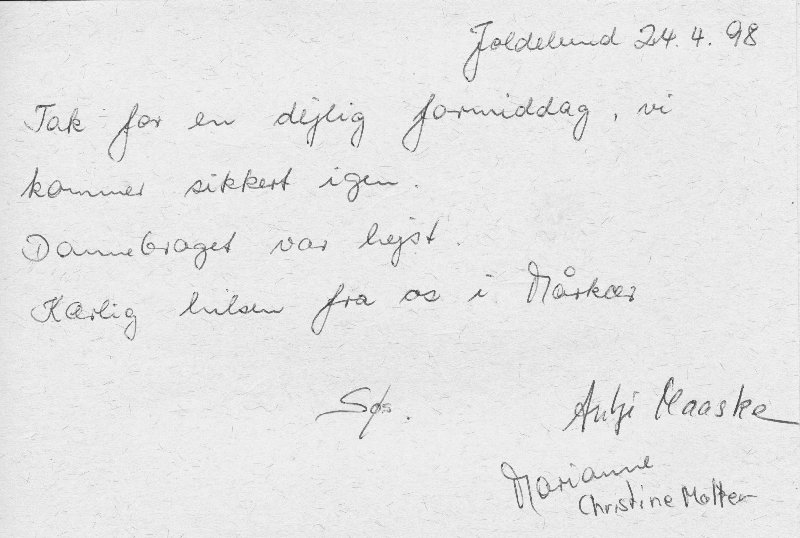 Joldelund 24.4.98
Tak for en dejlig formiddag, vi
kommer sikkert igen.
Dannebroget var hejst.
Kærlig hilsen fra os i Mårkær
Søs.
Antje Maaske
Marianne
Christine